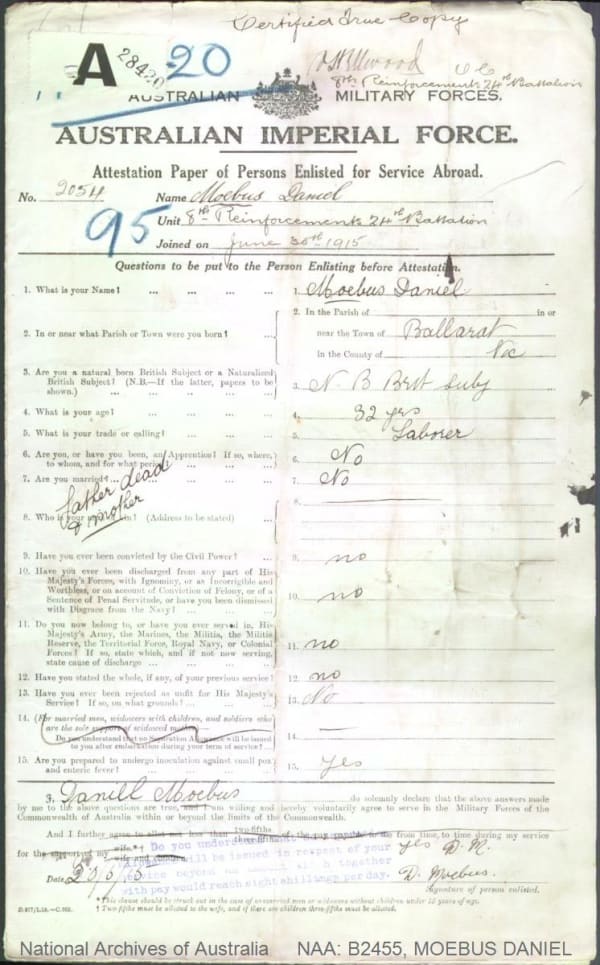 Certified True Copy
A
28420
20
8th Reinforcements 24th Battalion
AUSTRALIAN MILITARY FORCES.
AUSTRALIAN IMPERIAL FORCE.
Attestation Paper of Persons Enlisted for Service Abroad.
No. 2054 Name Moebus Daniel
95
Unit 8th Reinforcements 24th Battalion
Joined on June 30th 1915
Questions to be put to the Person Enlisting before Attestation.
1. What is your Name? ... ... ... ... 1. Moebus Daniel
2. In or near what Parish or Town were you born? ... 2. In the Parish of in or
near the Town of Ballarat
in the County of Vic
3. Are you a natural born British Subject or a Naturalized
British Subject? (N.B.—If the latter, papers to be
shown.) ... ... ... ... 3. N B Brit Subj
4. What is your age? ... ... ... ... 4. 32 yrs
5. What is your trade or calling? ... ... ... 5. Laborer
6. Are you, or have you been, an Apprentice? If so, where,
to whom, and for what period? ... 6. No
7. Are you married? ... 7. No
father dead
& mother
8. Who is your next of kin? (Address to be stated) ... 8.
9. Have you ever been convicted by the Civil Power? ... 9. no
10. Have you ever been discharged from any part of His
Majesty's Forces, with Ignominy, or as Incorrigible and
Worthless, or on account of Conviction of Felony, or of a
Sentence of Penal Servitude, or have you been dismissed
with Disgrace from the Navy? ... ... ... 10. no
11. Do you now belong to, or have you ever served in, His
Majesty's Army, the Marines, the Militia, the Militia
Reserve, the Territorial Force, Royal Navy, or Colonial
Forces? If so, state which, and if not now serving,
state cause of discharge ... ... ... ... 11. no
12. Have you stated the whole, if any, of your previous service? 12. no
13. Have you ever been rejected as unfit for His Majesty's
Service? If so, on what grounds? ... ... ... 13. No
14. (For married men, widowers with children, and soldiers who
are the sole support of widowed mother)
Do you understand that no Separation Allowance will be issued
to you after embarkation during your term of service? ... 14. —
15. Are you prepared to undergo inoculation against small pox
and enteric fever? ... ... ... ... 15. yes
I, Daniel Moebus do solemnly declare that the above answers made
by me to the above questions are true, and I am willing and hereby voluntarily agree to serve in the Military Forces of the
Commonwealth of Australia within or beyond the limits of the Commonwealth.
And I further agree to allot not less than two-fifths of the pay payable to me from time to time during my service
for the support of my wife
wife and children
Do you understand that
will be issued in respect of your
service beyond together
with pay would reach eight shillings per day.
yes D. M.
Date D. Moebus.
Signature of person enlisted.
* This clause should be struck out in the case of unmarried men or widowers without children under 18 years of age.
† Two-fifths must be allotted to the wife, and if there are children three-fifths must be allotted.
National Archives of Australia NAA: B2455, MOEBUS DANIEL